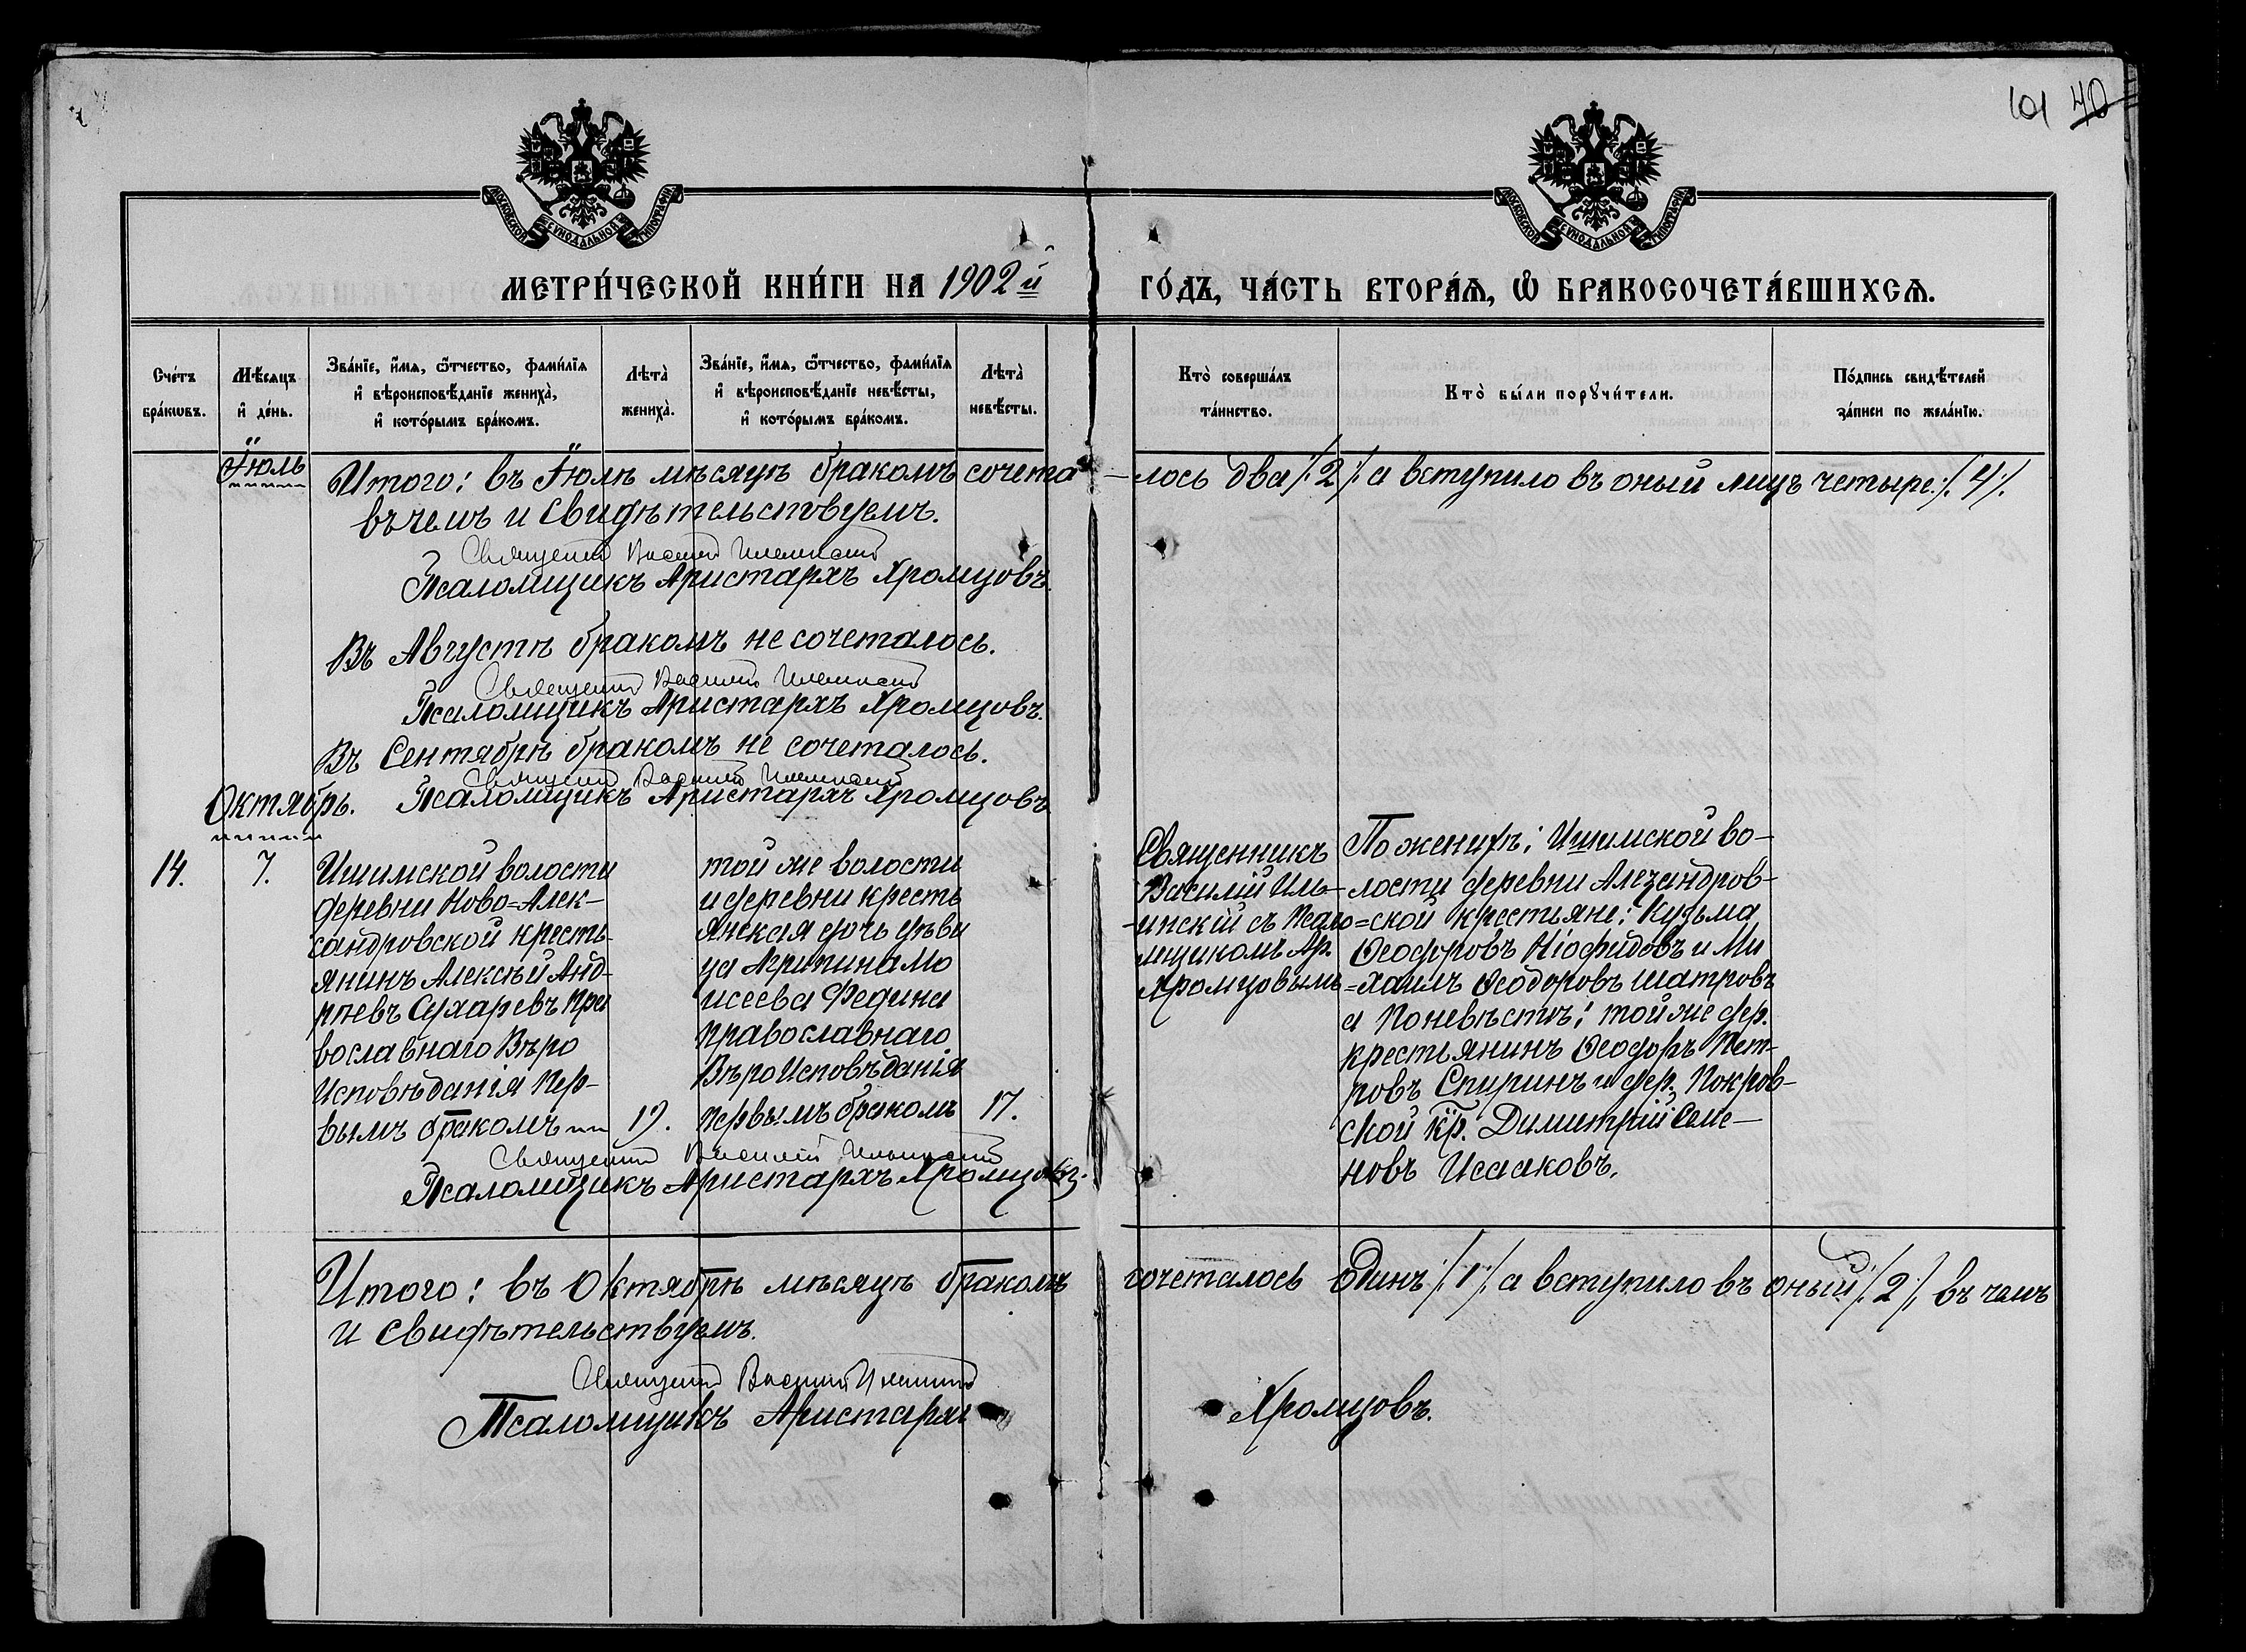 101 40
МОСКОВСКОЙ СѴНОДАЛЬНОЙ ТИПОГРАФІИ
МОСКОВСКОЙ СѴНОДАЛЬНОЙ ТИПОГРАФІИ
МЕТРИ́ЧЕСКОЙ КНИ́ГИ НА 1902й ГО́ДЪ, ЧА́СТЬ ВТОРА́Ѧ, Ѽ БРАКОСОЧЕТА́ВШИХСѦ.
Сче́тъ
бра́кωвъ.
Мѣ́сѧцъ
и҆ де́нь.
Зва́нїе, и҆́мѧ, ѻ҆́тчество, фами́лїѧ
и҆ вѣроисповѣ́данїе жениха̀,
и҆ кото́рымъ бра́комъ.
Лѣта̀
жениха̀.
Зва́нїе, и҆́мѧ, ѻ҆́тчество, фами́лїѧ
и҆ вѣроисповѣ́данїе невѣ́сты,
и҆ кото́рымъ бра́комъ.
Лѣта̀
невѣ́сты.
Кто̀ соверша́лъ
та́инство.
Кто̀ бы́ли порꙋчи́тели.
По́дпись свидѣ́телей
за́писи по жела́нїю.
Іюль
Итого: въ Іюлѣ мѣсяцѣ бракомъ сочета-лось два /:2:/ а вступило въ оный лицъ четыре /:4:/.
въ чемъ и свидѣтельствуемъ.
Священникъ Василій Ильинскій
Псаломщикъ Аристархъ Хромцовъ.
Въ Августѣ бракомъ не сочеталось.
Священникъ Василій Ильинскій
Псаломщикъ Аристархъ Хромцовъ.
Въ Сентябрѣ бракомъ не сочеталось.
Священникъ Василій Ильинскій
Октябрь. Псаломщикъ Аристархъ Хромцовъ
14.
7.
Ишимской волости
деревни Ново=Алек-
сандровской кресть-
янинъ Алексѣй Анд-
рѣевъ Сухаревъ Пра
вославнаго Вѣро
Исповѣданія Пер-
вымъ бракомъ
19.
той же волости
и деревни кресть
янская дочь дѣви
ца Агрипина Мо
исеева Федина
православнаго
ВѣроИсповѣданія
первымъ бракомъ
17.
Священникъ
Василій Иль-
-инскій съ Псало
мщикомъ Ар.
Хромцовымъ
По женихѣ: Ишимской во-
лости деревни Алезандров-
=ской крестьяне: Кузьма
Ѳеодоровъ Ніофидовъ и Ми
=хаилъ Ѳеодоровъ Шатровъ
а По невѣстѣ: той же дер.
крестьянинъ Ѳеодоръ Пет-
ровъ Спиринъ и дер. Покров-
ской кр. Димитрій Семе-
новъ Исааковъ.
Священникъ Василій Ильинскій
Псаломщикъ Аристархъ Хромцовъ.
Итого: въ Октябрѣ мѣсяцѣ бракомъ сочеталось одинъ /:1:/ а вступило въ оный /:2:/ въ чемъ
и свидѣтельствуемъ.
Священникъ Василій Ильинскій
Псаломщикъ Аристархъ Хромцовъ.